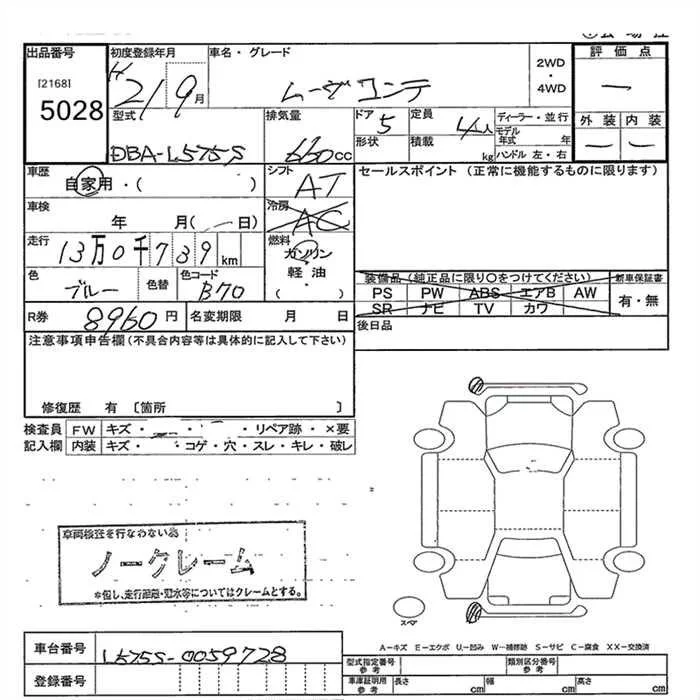 出品番号 初度登録年月 車名・グレード 2WD・4WD 評価点
[2168]
5028
H21 9月 ムーヴコンテ
型式 排気量 ドア 5 定員 4人 ディーラー・並行 外装 内装
形状 積載 kg モデル年式 年
DBA-L575S 660cc ハンドル 左・右
車歴 シフト セールスポイント (正常に機能するものに限ります)
自家用・( ) AT
車検 冷房
年 月( 日) AC
走行 燃料
13万0千739km ガソリン
色 色替 色コード 軽油
ブルー B70 ( )
装備品(純正品に限り○をつけてください) 新車保証書
PS PW ABS エアB AW 有・無
SR ナビ TV カワ
R券 8960円 名変期限 月 日 後日品
注意事項申告欄(不具合内容等は具体的に記入して下さい)
修復歴 有 〔箇所 〕
検査員 FW キズ・ ・ ・リペア跡・×要
記入欄 内装 キズ・ ・コゲ・穴・スレ・キレ・破レ
車両検査を行なわない為
ノークレーム
※但し、走行距離・冠水等についてはクレームとする。
スペア
A-キズ E-エクボ U-凹み W-補修跡 S-サビ C-腐食 XX-交換済
車台番号 L575S-0059728
登録番号
型式指定番号 参考 類別区分番号 参考
車庫証明用 参考 長さ cm 幅 cm 高さ cm